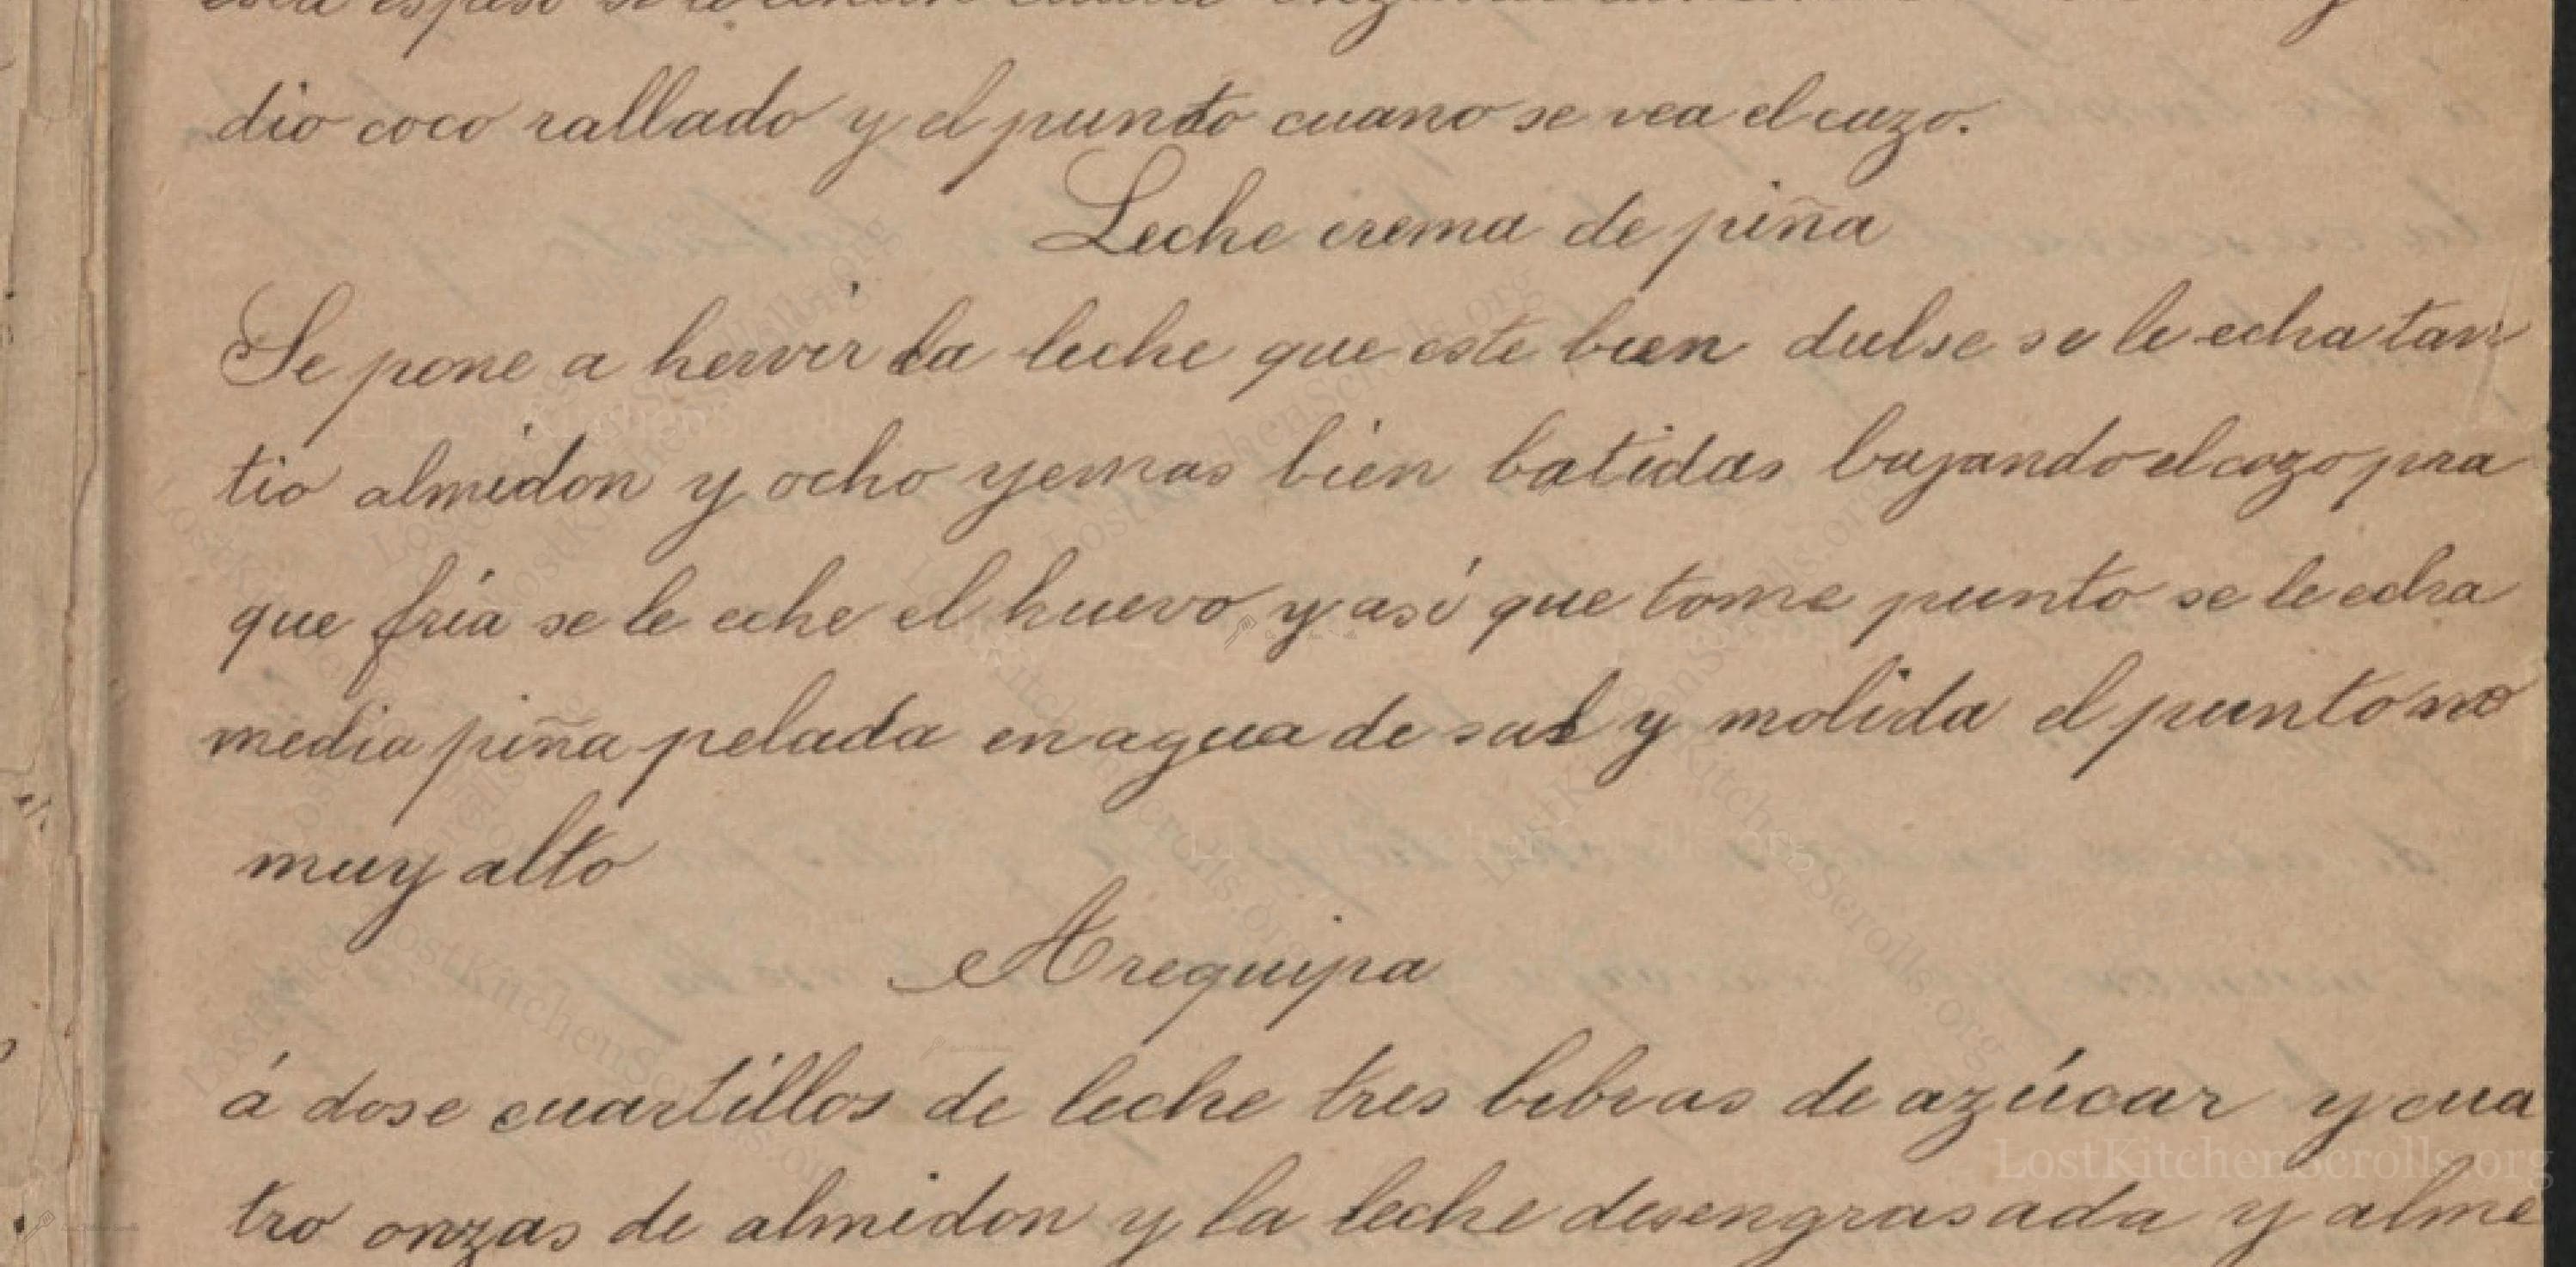 dio coco rallado y el punto cuano se vea el cazo.
Leche crema de piña
Se pone a hervir la leche que este bien dulse se le echa tan
tio almidon y ocho yemas bien batidas bajando el cazo pra
que fria se le eche el huevo y así que tome punto se le echa
media piña pelada en agua de sal y molida el punto no
muy alto
Arequipa
á dose cuartillos de leche tres libras de azúcar y cua
tro onzas de almidon y la leche desengrasada y alme
LostKitchenScrolls.org